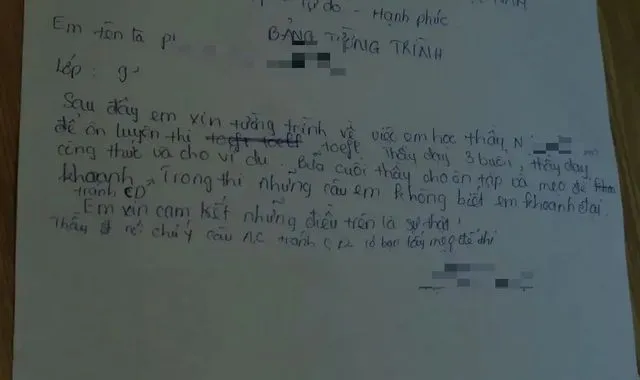 tự do - Hạnh phúc
Em tên là
BẢNG TƯỜNG TRÌNH
Lớp: 9
Sau đây em xin tường trình về việc em học thầy N
để ôn luyện thi toefl. Thầy dạy 3 buổi, thầy dạy
công thức và cho ví dụ. Bữa cuối thầy cho ôn tập và mẹo để
khoanh. Trong thi những câu em không biết em khoanh đại
tránh CD
Em xin cam kết những điều trên là sự thật!
Thầy chú ý câu A, C tránh bạn lấy mẹo để thi